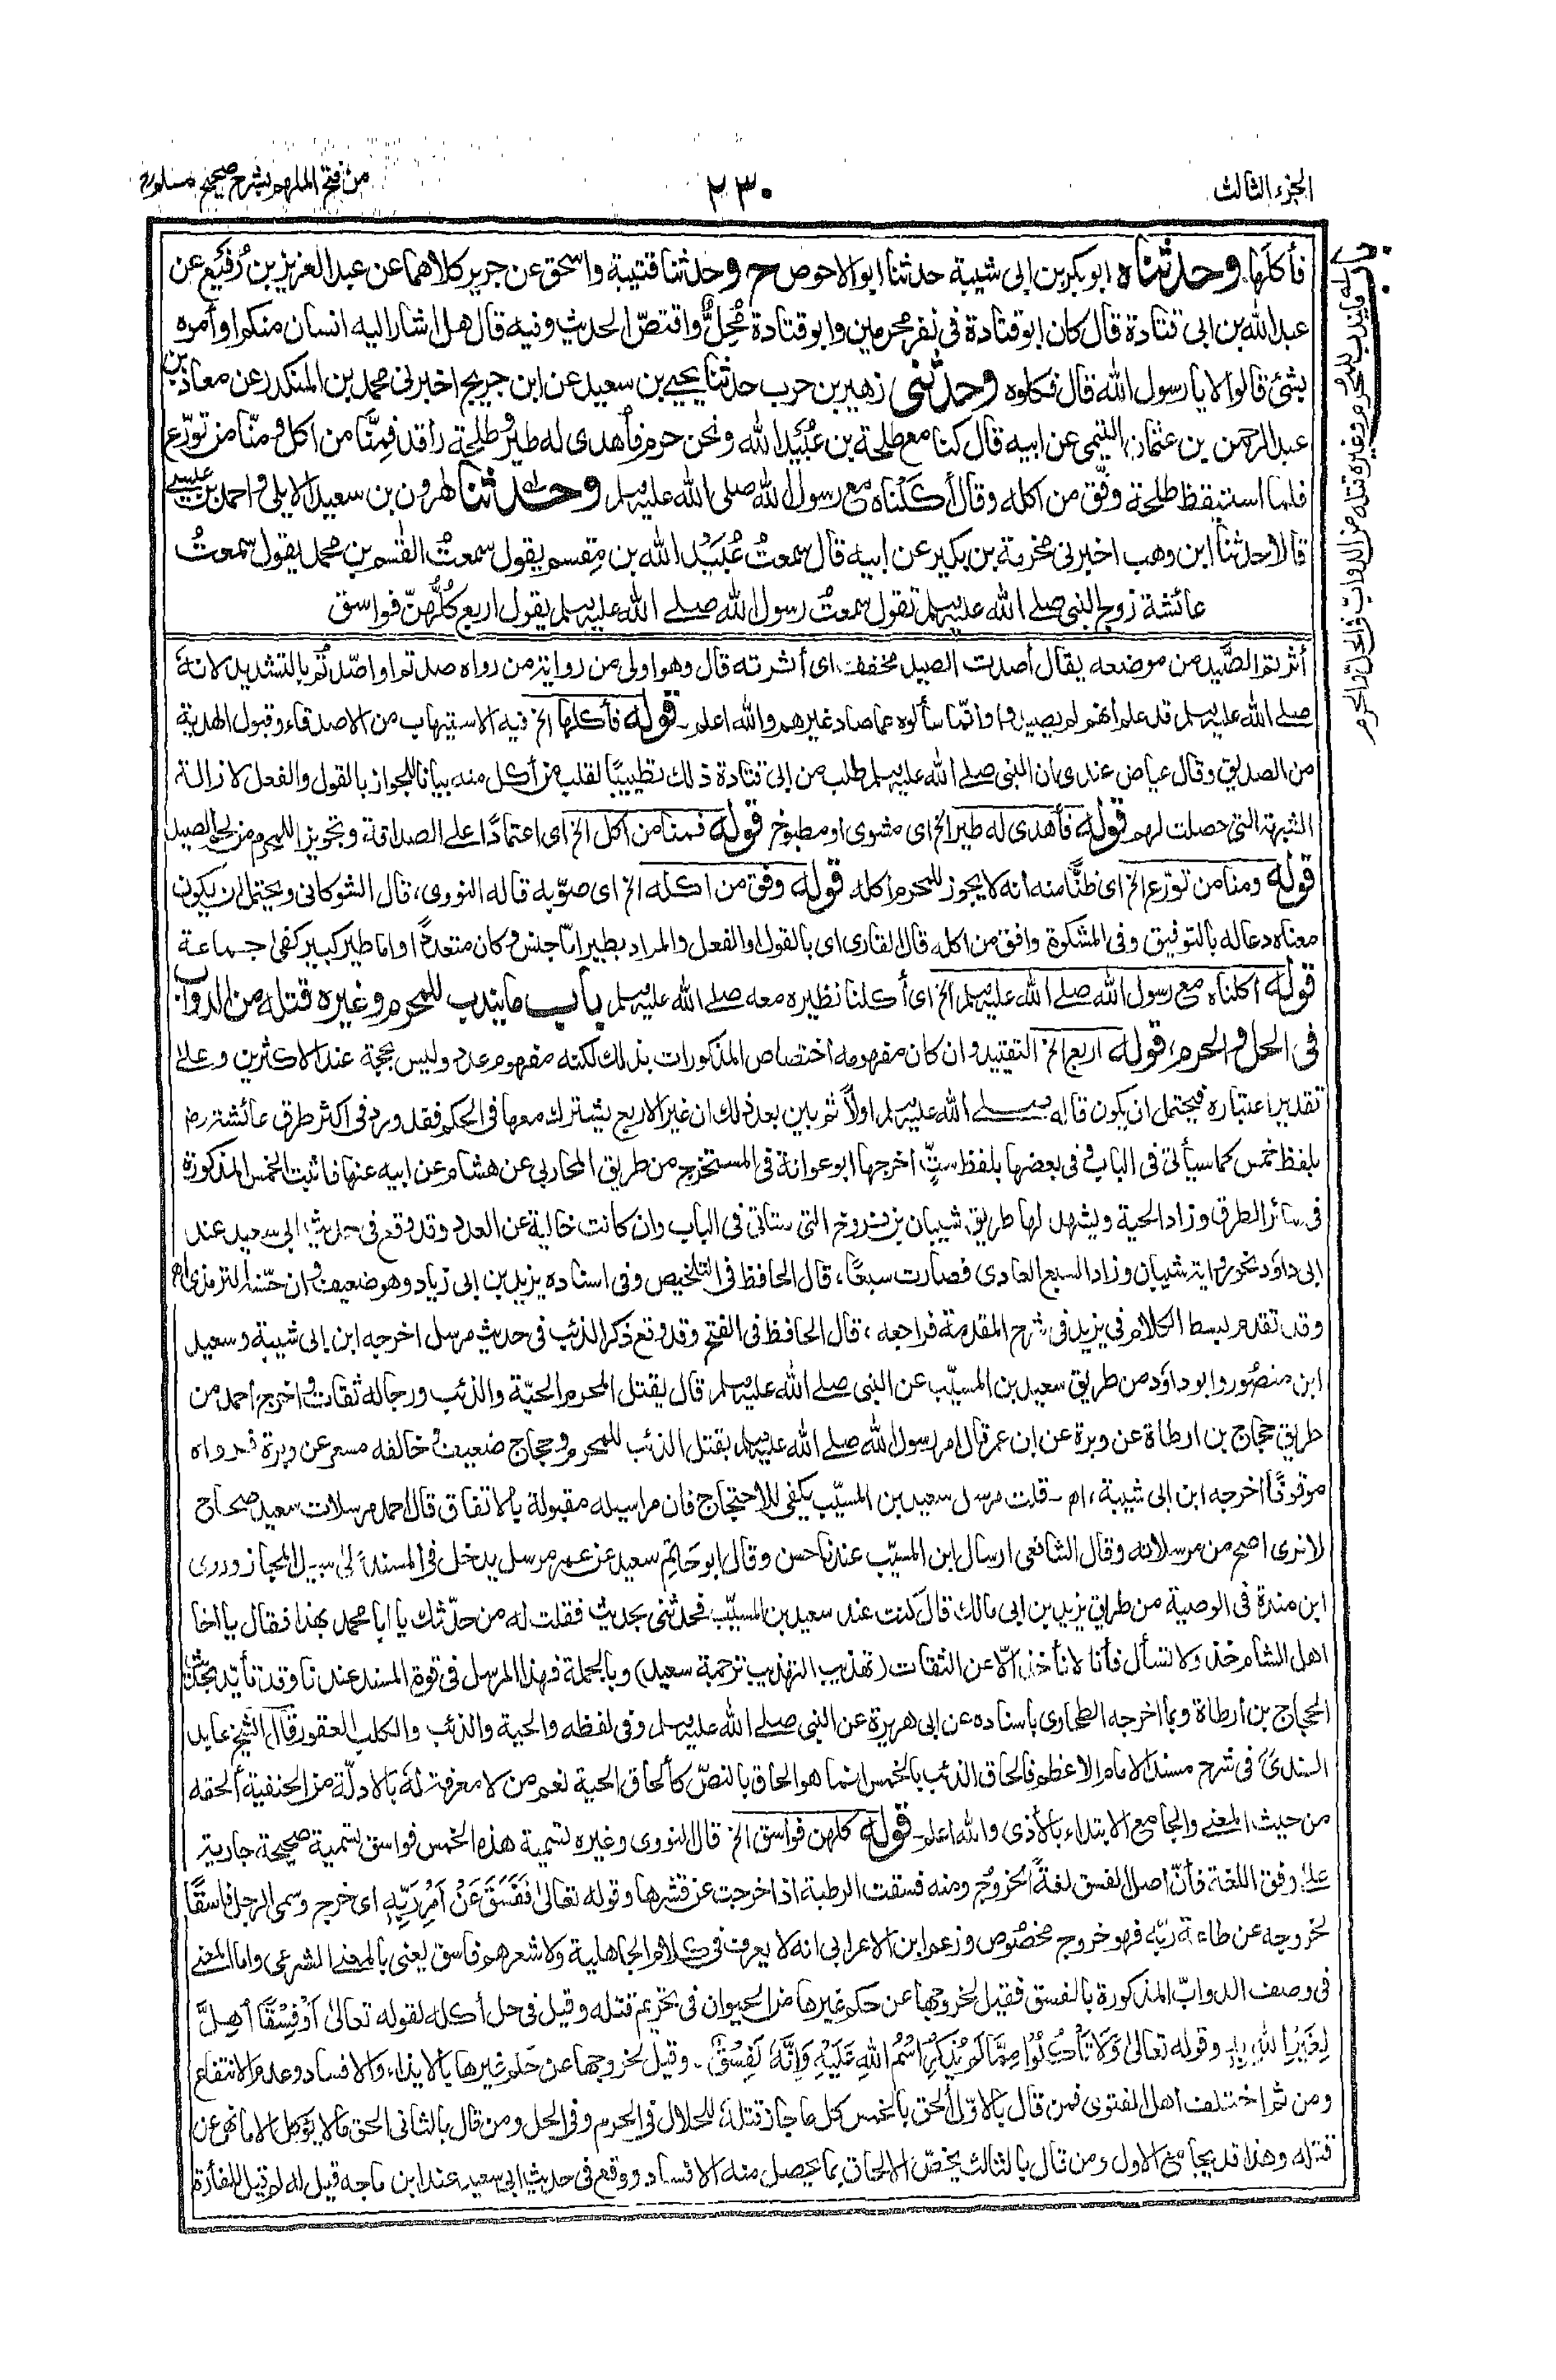 الجزء الثالث
٢٣٠
من فتح الملهم بشرح صحيح مسلم
باب ما يندب للمحرم وغيره قتله من الدواب في الحل والحرم
فأكلها وحدثناه ابو بكر بن ابى شيبة حدثنا ابو الاحوص ح وحدثنا قتيبة واسحق عن جرير كلاهما عن عبد العزيز بن رُفَيْع عن
عبد الله بن ابى قتادة قال كان ابو قتادة فى نفر محرمين وابو قتادة مُحِلٌّ واقتصّ الحديث وفيه قال هل اشار اليه انسان منكم او أمره
بشئ قالوا لا يا رسول الله قال فكلوه وحدثنى زهير بن حرب حدثنا يحيى بن سعيد عن ابن جريج اخبرنى محمد بن المنكدر عن معاذ بن
عبد الرحمن بن عثمان التيمى عن ابيه قال كنا مع طلحة بن عُبَيْد الله ونحن حرم فأُهدى له طير وطلحة راقد فمِنَّا من اكل ومنّا من تورّع
فلما استيقظ طلحة وفّق من اكله وقال أكلناه مع رسول الله صلى الله عليه وسلم وحدثنا هٰرون بن سعيد الايلى واحمد بن عيسى
قالا حدثنا ابن وهب اخبرنى مخرمة بن بكير عن ابيه قال سمعتُ عُبَيْد الله بن مِقسم يقول سمعتُ القٰسم بن محمد يقول سمعتُ
عائشة زوج النبى صلى الله عليه وسلم تقول سمعتُ رسول الله صلى الله عليه وسلم يقول اربع كُلُّهنّ فواسق
أثرتم الصَّيد من موضعه يقال أصدت الصيد مخفف، اى أثرته قال وهو اولى من رواية من رواه صدتم او اصّدتُم بالتشديد لانهٗ
صلى الله عليه وسلم قد علم أنهم لم يصيدوا وانّما سألوه عما صاد غيرهم والله اعلم۔ قوله فأكلها الخ فيه الاستيهاب من الاصدقاء وقبول الهدية
من الصديق وقال عياض عندى ان النبى صلى الله عليه وسلم طلب من ابى قتادة ذلك تطييبًا لقلب من أكل منه بيانا للجواز بالقول والفعل لازالة
الشبهة التى حصلت لهم قوله فأهدى له طير الخ اى مشوى او مطبوخ قوله فمنا من اكل الخ اى اعتمادًا على الصداقة وتجويزا للمحرم من لحم الصيد
قوله ومنا من تورّع الخ اى ظنًّا منه انه لا يجوز للمحرم اكله قوله وفق من اكله الخ اى صوّبه قاله النووى، قال الشوكانى ويحتمل ان يكون
معناه دعا له بالتوفيق وفى المشكوة وافق من اكله قال القارى اى بالقول او الفعل والمراد بطير امّا جنس وكان متعددًا واما طير كبير كفى جماعة
قوله اكلناه مع رسول الله صلى الله عليه وسلم الخ اى أكلنا نظيره معه صلى الله عليه وسلم باب ما يندب للمحرم وغيره قتله من الدواب
فى الحل والحرم، قوله اربع الخ التقييد وان كان مفهومه اختصاص المذكورات بذلك لكنه مفهوم عدد وليس بحجة عند الاكثرين وعلى
تقدير اعتباره فيحتمل ان يكون قاله صلى الله عليه وسلم اولًا ثم بين بعد ذلك ان غير الاربع يشترك معها فى الحكم فقد ورد فى اكثر طرق عائشة رض
بلفظ خمس كما سيأتى فى الباب وفى بعضها بلفظ ستّ اخرجها ابو عوانة فى المستخرج من طريق المحاربى عن هشام عن ابيه عنها فاثبت الخمس المذكورة
فى سائر الطرق وزاد الحية ويشهد لها طريق شيبان بن فروخ التى ستاتى فى الباب وان كانت خالية عن العدد وقد وقع فى حديث ابى سعيد عند
ابى داؤد نحو رواية شيبان وزاد السبع العادى فصارت سبعًا، قال الحافظ فى التلخيص وفى اسناده يزيد بن ابى زياد وهو ضعيف وان حسّنه الترمذى اه
وقد تقدم بسط الكلام فى يزيد فى شرح المقدمة فراجعه، قال الحافظ فى الفتح وقد وقع ذكر الذئب فى حديث مرسل اخرجه ابن ابى شيبة وسعيد
ابن منصُور وابو داؤد من طريق سعيد بن المسيّب عن النبى صلى الله عليه وسلم قال يقتل المحرم الحيّة والذئب ورجاله ثقات واخرج احمد من
طريق حجاج بن ارطاة عن وبرة عن ابن عمر قال امر رسول الله صلى الله عليه وسلم بقتل الذئب للمحرم وحجاج ضعيف وخالفه مسعر عن وبرة فرواه
موقوفًا اخرجه ابن ابى شيبة، اه۔ قلت مرسل سعيد بن المسيّب يكفى للاحتجاج فان مراسيله مقبولة بالاتفاق قال احمد مرسلات سعيد صحاح
لا نرى اصح من مرسلاته وقال الشافعى ارسال ابن المسيّب عندنا حسن وقال ابو حاتم سعيد عن عمر مرسل يدخل فى المسند على سبيل المجاز وروى
ابن مندة فى الوصية من طريق يزيد بن ابى مالك قال كنت عند سعيد بن المسيّب فحدثنى بحديث فقلت له من حدّثك يا ابا محمد بهذا فقال يا اخا
اهل الشام خذ ولا تسأل فأنا لا نأخذ الّا عن الثقات (تهذيب التهذيب ترجمة سعيد) وبالجملة فهذا المرسل فى قوة المسند عندنا وقد تأيد بحديث
الحجاج بن أرطاة وبما اخرجه الطحاوى باسناده عن ابى هريرة عن النبى صلى الله عليه وسلم وفى لفظه والحية والذئب والكلب العقور قال الشيخ عابد
السندىؒ فى شرح مسند الامام الاعظم فالحاق الذئب بالخمس انما هو الحاق بالنصّ كألحاق الحية نعم من لا معرفة له بالادلّة من الحنفية ألحقه
من حيث المعنى والجامع الابتداء بالأذى والله اعلم۔ قوله كلهن فواسق الخ قال النووى وغيره تسمية هذه الخمس فواسق تسمية صحيحة جارية
على وفق اللغة فأنّ اصل الفسق لغةً الخروُج ومنه فسقت الرطبة اذا خرجت عن قشرها وقوله تعالىٰ فَفَسَقَ عَنْ اَمْرِ رَبِّهٖ اى خرج وسمى الرجل فاسقًا
لخروجه عن طاعة ربّه فهو خروج مخصُوص وزعم ابن الاعرابى انه لا يعرف فى كلام الجاهلية ولا شعرهم فاسق يعنى بالمعنى الشرعى واما المعنى
فى وصف الدوابّ المذكورة بالفسق فقيل لخروجها عن حكم غيرها من الحيوان فى تحريم قتله وقيل فى حل أكله لقوله تعالىٰ اَوْ فِسْقًا اُهِلَّ
لِغَيْرِ اللهِ بِهٖ وقوله تعالىٰ وَلَا تَأْكُلُوْا مِمَّا لَمْ يُذْكَرِ اسْمُ اللهِ عَلَيْهِ وَاِنَّهٗ لَفِسْقٌ ۔ وقيل لخروجها عن حكم غيرها بالايذاء والافساد وعدم الانتفاع
ومن ثم اختلف اهل الفتوى فمن قال بالاوّل ألحق بالخمس كل ما جاز قتله للحلال فى الحرم وفى الحل ومن قال بالثانى الحق ما لا يؤكل الا ما نهى عن
قتله وهذا قد يجامع الاول ومن قال بالثالث يخصّ الالحاق بما يحصل منه الافساد ووقع فى حديث ابى سعيد عند ابن ماجه قيل له لم قيل للفأرة